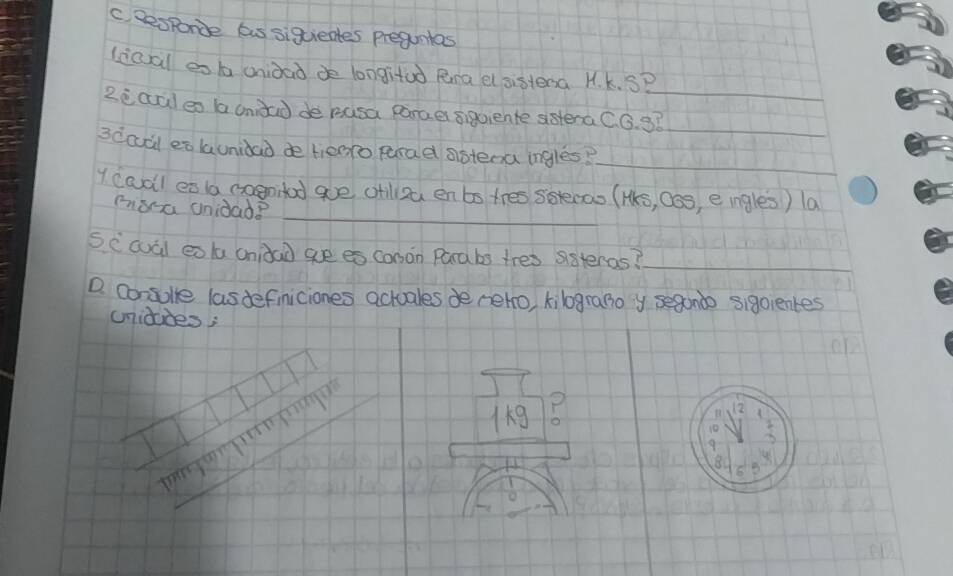 C Responde las siguientes Preguntas
1¿cuál es la unidad de longitud Para el sistema M.K.S?
2¿cuál es la unidad de masa Para el siguiente sistema C.G.S?
3¿cuál es la unidad de tiempo para el sistema inglés?
4¿cuál es la magnitud que utiliza en los tres sistemas (MKS, CGS, e inglés) la
misma unidad?
5¿cuál es la unidad que es común Para los tres sistemas?
D. Consulte las definiciones actuales de metro, kilogramo y segundo siguientes
unidades:
1kg ?
0
11 12 1
10 2
9 3
8 7 6 5 4